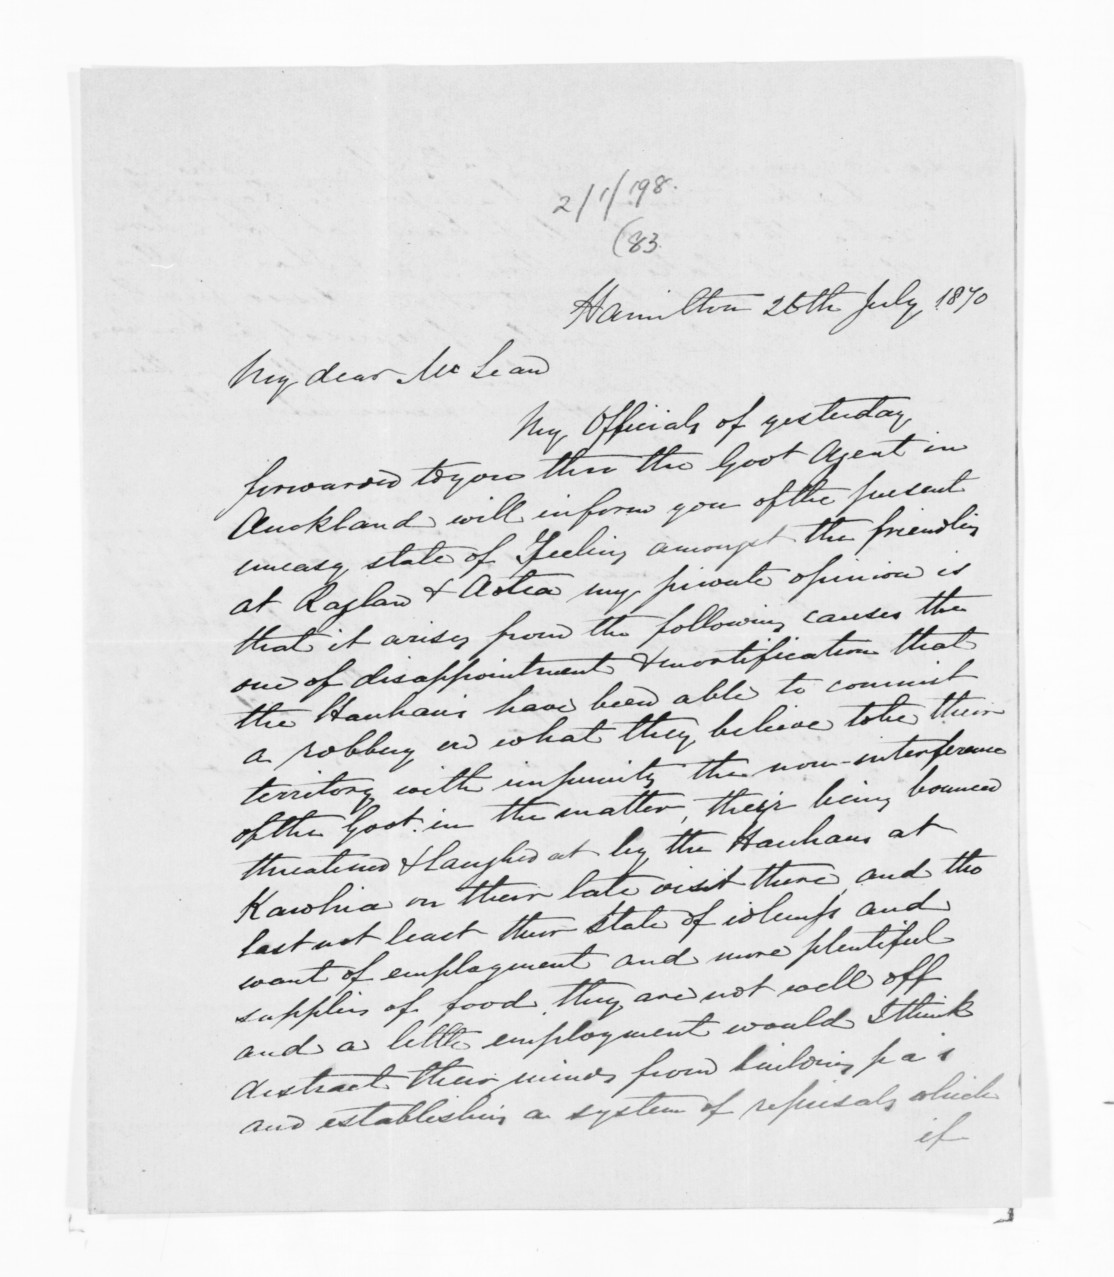 2/1/198.
(83.
Hamilton 26th July 1870
My dear McLean
My Officials of yesterday
forwarded to you thro the Govt Agent in
Auckland will inform you of the present
uneasy state of Feeling amongst the friendlies
at Raglan & Aotea my private opinion is
that it arises from the following causes the
one of disappointment & mortification that
the Hauhaus have been able to commit
a robbery on what they believe to be their
territory with impunity the non-interference
of the Govt. in the matter, their being bounced
threatened & laughed at by the Hauhaus at
Kawhia on their late visit there, and tho
last not least their State of idleness and
want of employment and more plentiful
supplies of food, they are not well off
and a little employment would I think
distract their minds from building pa's
and establishing a system of reprisals which
if